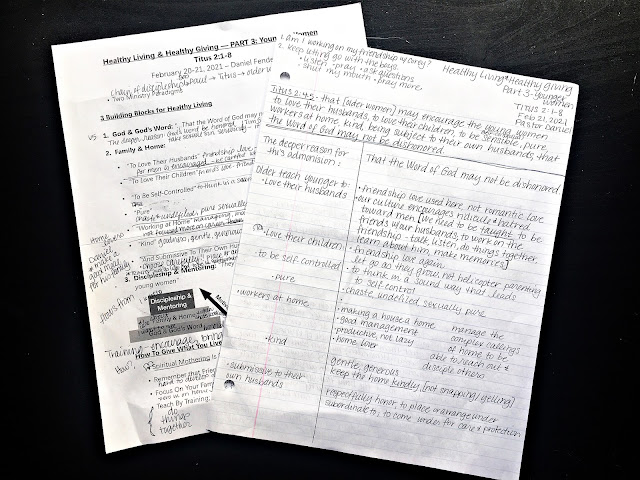 Healthy Living & Healthy Giving — PART 3: You Women
Titus 2:1-8
February 20-21, 2021 – Daniel Fende
chain of discipleship Paul → Titus → older w
• Two Ministry Paradigms
3 Building Blocks for Healthy Living
vs 1. God & God's Word: "That the Word of God may n
The deeper reason: God's word be honored.
2. Family & Home:
"To Love Their Husbands" friendship love
"To Love Their Children"
"To Be Self-Controlled" to think in a
"Pure"
chaste undefiled, pure sexually
"Working at Home"
"Kind" goodness, gentle, generous
"And Submissive To Their Own Hu
young women"
3. Discipleship & Mentoring:
Discipleship & Mentoring
Family & Home
God's Word
Training - encourage, bring
How To Give What You Live
Spiritual Mothering Is
• Remember that Frie
Focus On Your Fam
Teach By Training,
do things together
1. am I working on my friendship w/Corey?
2. keep letting go with the boys.
• listen • pray • ask questions
• shut my mouth • pray more.
Healthy Living & Healthy giving
Part 3 - younger women
Titus 2:1-8
Feb 21, 2021
Pastor Daniel
Titus 2:4-5 - that [older women] may encourage the young women
to love their husbands, to love their children, to be sensible, pure,
workers at home, kind, being subject to their own husbands, that
the Word of God may not be dishonored.
The deeper reason for this admonision:
That the Word of God may not be dishonored
Older teach younger to:
• Love their husbands
• friendship love used here not romantic love
• our culture encourages ridicule & hatred
toward men [we need to be taught to be
friends w/our husbands, to work on the
friendship - talk, listen, do things together,
learn about him, make memories]
• Love their children
• friendship love again
let go as they grow, not helicopter parenting
• to be self controlled
• to think in a sound way that leads
to self control
• pure
• chaste, undefiled sexually pure
• workers at home
• making a house a home
• good management
• productive, not lazy
• home, lover
manage the
complex callings
of home to be
able to reach out &
disciple others
• kind
gentle, generous
keep the home kindly, [not snapping/yelling]
• submissive to their own husbands
respectfully honor, to place or arrange under
subordinate to, to come under for care & protection